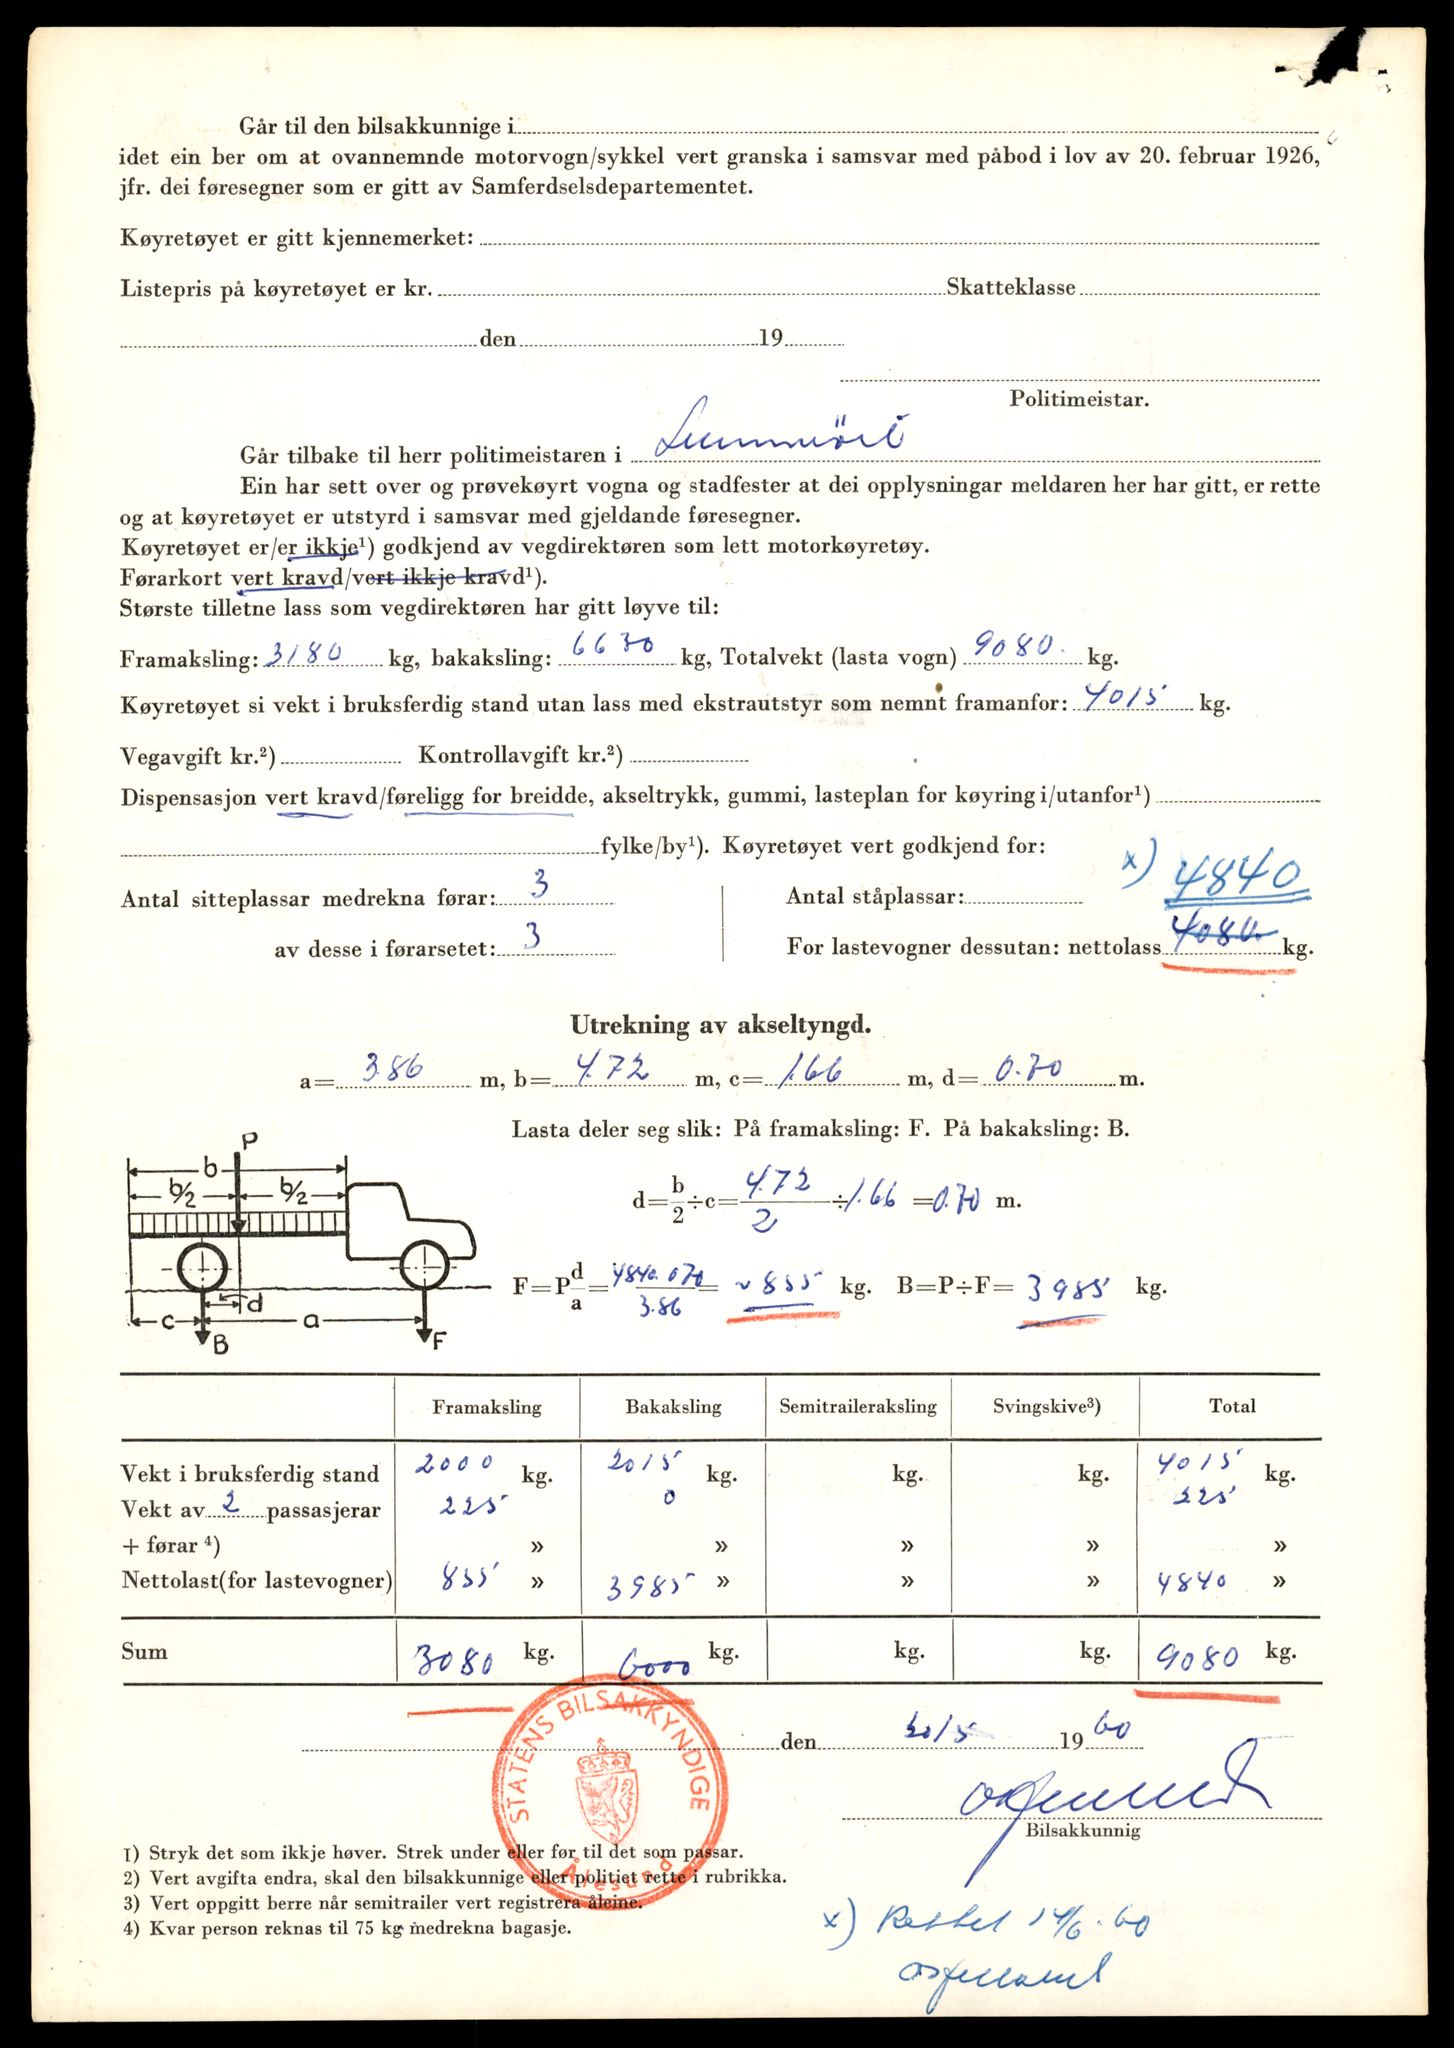 Går til den bilsakkunnige i
idet ein ber om at ovannemnde motorvogn/sykkel vert granska i samsvar med påbod i lov av 20. februar 1926,
jfr. dei føresegner som er gitt av Samferdselsdepartementet.
Køyretøyet er gitt kjennemerket:
Listepris på køyretøyet er kr. Skatteklasse
den 19
Politimeistar.
Går tilbake til herr politimeistaren i Sunnmöre
Ein har sett over og prøvekøyrt vogna og stadfester at dei opplysningar meldaren her har gitt, er rette
og at køyretøyet er utstyrd i samsvar med gjeldande føresegner.
Køyretøyet er/er ikkje¹) godkjend av vegdirektøren som lett motorkøyretøy.
Førarkort vert kravd/vert ikkje kravd¹).
Største tilletne lass som vegdirektøren har gitt løyve til:
Framaksling: 3180 kg, bakaksling: 6630 kg, Totalvekt (lasta vogn) 9080 kg.
Køyretøyet si vekt i bruksferdig stand utan lass med ekstrautstyr som nemnt framanfor: 4015 kg.
Vegavgift kr.²) Kontrollavgift kr.²)
Dispensasjon vert kravd/føreligg for breidde, akseltrykk, gummi, lasteplan for køyring i/utanfor¹)
fylke/by¹). Køyretøyet vert godkjend for:
x) 4840
Antal sitteplassar medrekna førar: 3 Antal ståplassar:
av desse i førarsetet: 3 For lastevogner dessutan: nettolass 4080 kg.
Utrekning av akseltyngd.
a= 3.86 m, b= 4.72 m, c= 1.66 m, d= 0.70 m.
Lasta deler seg slik: På framaksling: F. På bakaksling: B.
P
b
b/2 b/2
d=b/2÷c=4.72/2÷1.66=0.70 m.
F=P d/a=4840.070/3.86=~855 kg. B=P÷F=3985 kg.
d
c a
B F
Framaksling Bakaksling Semitraileraksling Svingskive³) Total
Vekt i bruksferdig stand 2000 kg. 2015 kg. kg. kg. 4015 kg.
Vekt av 2 passasjerar 225 0 225
+ førar ⁴) » » » » »
Nettolast(for lastevogner) 855 » 3985 » » » 4840 »
Sum 3080 kg. 6000 kg. kg. kg. 9080 kg.
den 20/5 1960
STATENS BILSAKKYNDIGE
Ålesund
Bilsakkunnig
1) Stryk det som ikkje høver. Strek under eller før til det som passar.
2) Vert avgifta endra, skal den bilsakkunnige eller politiet rette i rubrikka.
3) Vert oppgitt berre når semitrailer vert registrera åleine.
4) Kvar person reknas til 75 kg medrekna bagasje.
x) Rettet 14/6.60